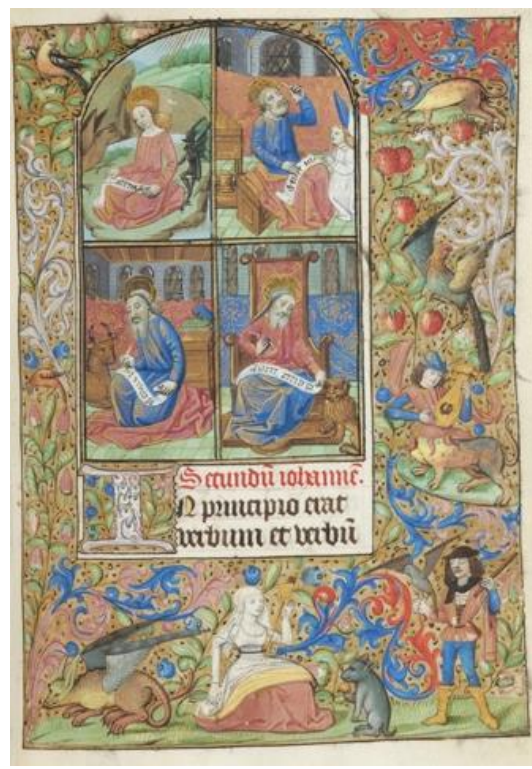 Secundū iohannē.
IN principio erat
verbum et verbū